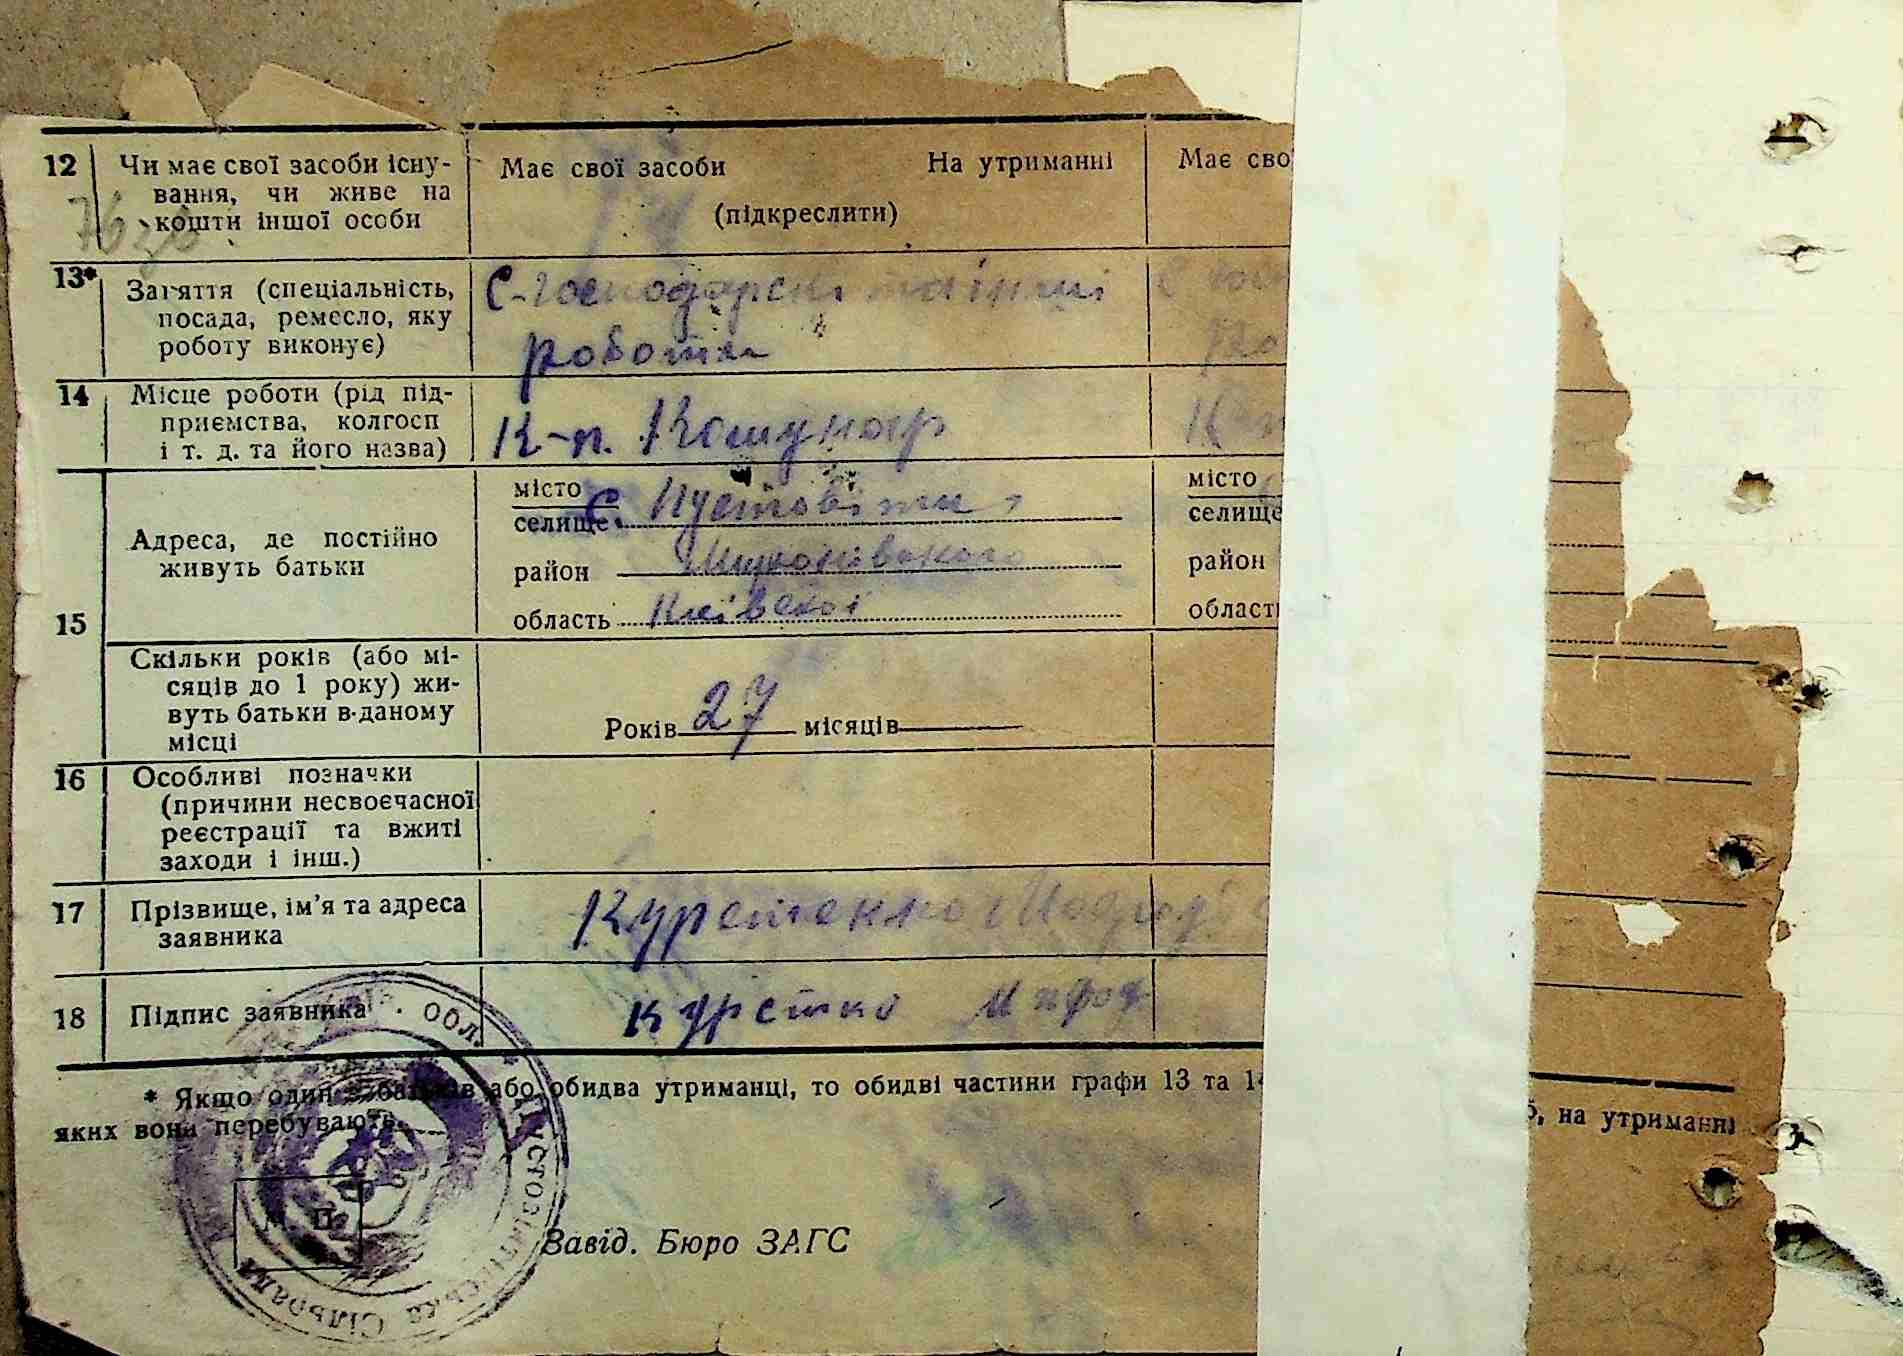 12 Чи має свої засоби існу- Має свої засоби На утриманні Має сво
вання, чи живе на
кошти іншої особи (підкреслити)
76
13* Заняття (спеціальність, С-господарскі та інші
посада, ремесло, яку
роботу виконує) роботи
14 Місце роботи (рід під-
приємства, колгосп К-п. Комунар
і т. д. та його назва)
15 Адреса, де постійно
живуть батьки
місто місто
селище с. Пустовіти селище
район Миронівського район
область Київської област
Скільки років (або мі-
сяців до 1 року) жи-
вуть батьки в даному
місці
Років 27 місяців
16 Особливі позначки
(причини несвоєчасної
реєстрації та вжиті
заходи і інш.)
17 Прізвище, ім'я та адреса
заявника
18 Підпис заявника
* Якщо один з батьків або обидва утриманці, то обидві частини графи 13 та 1 , на утриманні
яких вони перебувають.
М. П.
Завід. Бюро ЗАГС
обл. * Пустовітська Сільрада